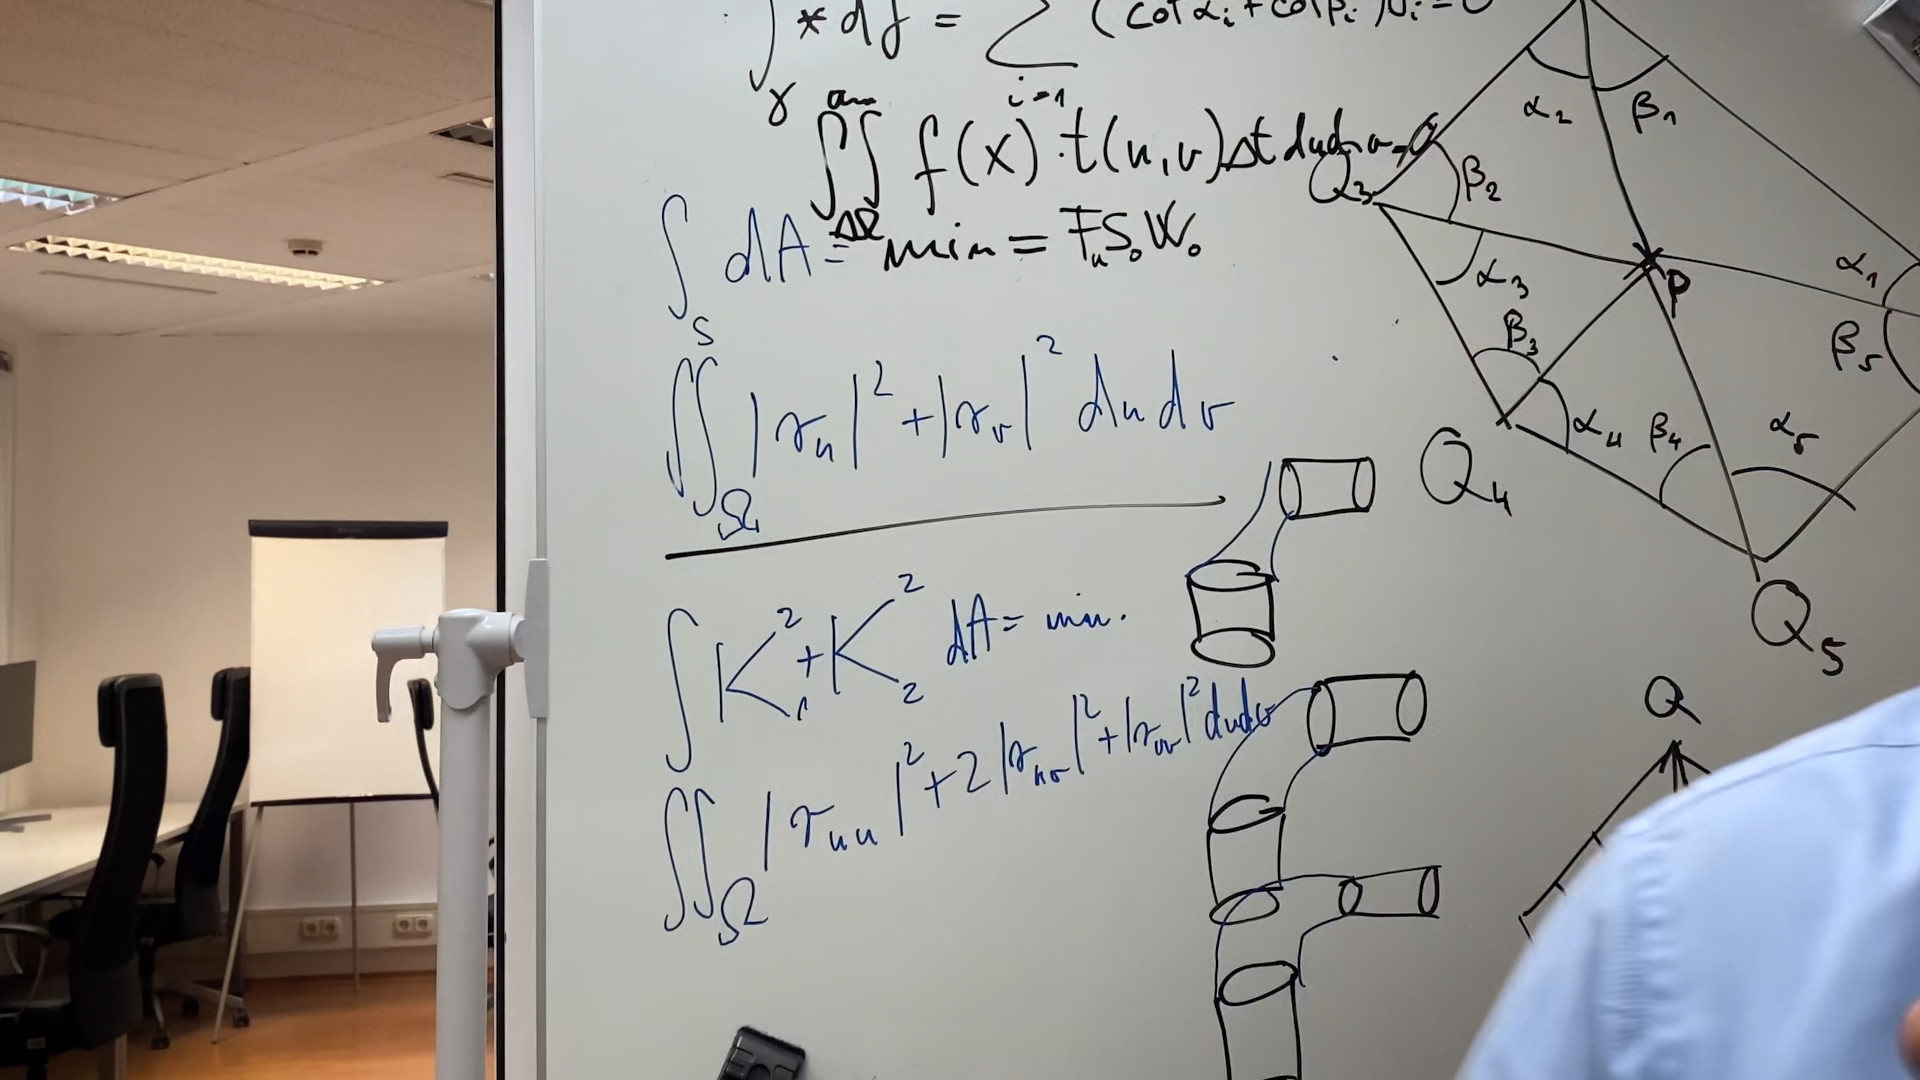 ∫_γ *df = ∑_{i=1} (cot α_i + cot β_i) v_i = 0
∬_{ΔΩ} f(x)·t(u,v)Δt dudv
∫_S dA = min = F_u S_o W_o
∬_Ω |r_u|² + |r_v|² du dv
∫ K₁² + K₂² dA = min.
∬_Ω |r_uu|² + 2|r_uv|² + |r_vv|² dudv
α₂ β₁
Q₃ β₂
α₃ P α₁
β₃ β₅
α₄ β₄ α₅
Q₄
Q₅
Q